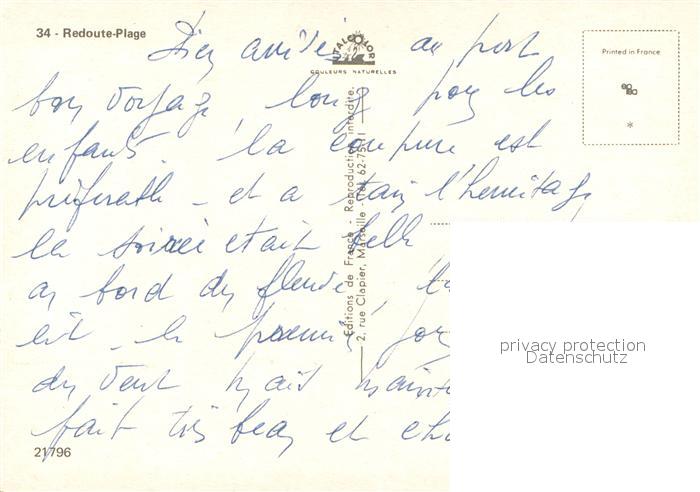 34 - Redoute-Plage
ITALCOLOR
COULEURS NATURELLES
Printed in France
*
Bien arrivés au port
bon voyage, long pour les
enfants. la coupure est
préférable - et a Tain l'hermitage
la soirée était belle
au bord du fleuve,
le premier jour
du vent mais
fait très beau et
Editions de France - Reproduction interdite.
2, rue Clapier, Marseille - Tél. 62.75.11
privacy protection
Datenschutz
21796